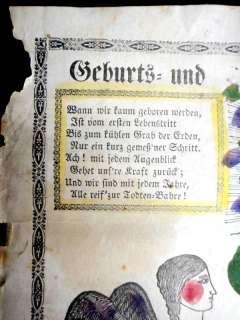 Geburts- und
Wann wir kaum geboren werden,
Ist vom ersten Lebenstritt
Bis zum kühlen Grab der Erden,
Nur ein kurz gemeß'ner Schritt.
Ach! mit jedem Augenblick
Gehet uns're Kraft zurück';
Und wir sind mit jedem Jahre,
Alle reif'zur Todten-Bahre!